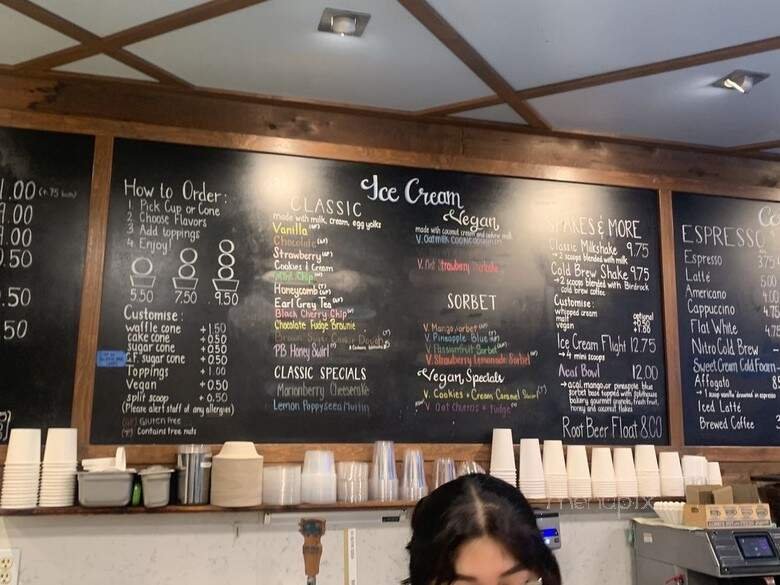 1.00
9.00
9.00
How to Order:
1. Pick Cup or Cone
2. Choose Flavors
3. Add toppings
4. Enjoy!
5.50 7.50 9.50
Customise:
waffle cone +1.50
cake cone +0.50
sugar cone +0.50
G.F. sugar cone
Toppings +1.00
Vegan +0.50
split scoop +0.50
(Please alert staff of any allergies)
GLUTEN FREE
Contains tree nuts
Ice Cream
CLASSIC
made with milk, cream, egg yolks
Vanilla
Chocolate
Strawberry
Cookies & Cream
Mint Chip
Honeycomb
Earl Grey Tea
Black Cherry Chip
Chocolate Fudge Brownie
PB Honey Swirl
CLASSIC SPECIALS
Marionberry Cheesecake
Lemon Poppyseed Muffin
Vegan
made with coconut cream and cashew milk
V. Oatmilk
Strawberry
SORBET
V. Mango Sorbet
V. Pineapple Blue
V. Passionfruit Sorbet
V. Strawberry Lemonade Sorbet
Vegan Specials
V. Cookies + Cream Caramel
V. Oat Churros + Fudge
SHAKES & MORE
Classic Milkshake 9.75
→ 2 scoops blended with milk
Cold Brew Shake 9.75
→ 2 scoops blended with Birdrock
cold brew coffee
Customise:
whipped cream
vegan
Ice Cream Flight 12.75
→ 4 mini scoops
Acai Bowl 12.00
→ acai, mango, or pineapple blue
sorbet base topped with
bakery gourmet granola, fresh fruit,
honey and coconut flakes
Root Beer Float 8.00
ESPRESSO
Espresso 3.75
Latté 5.00
Americano
Cappuccino
Flat White
Nitro Cold Brew
Sweet Cream Cold Foam
Affogato
→ 1 scoop vanilla drowned in espresso
Iced Latté
Brewed Coffee
menupix